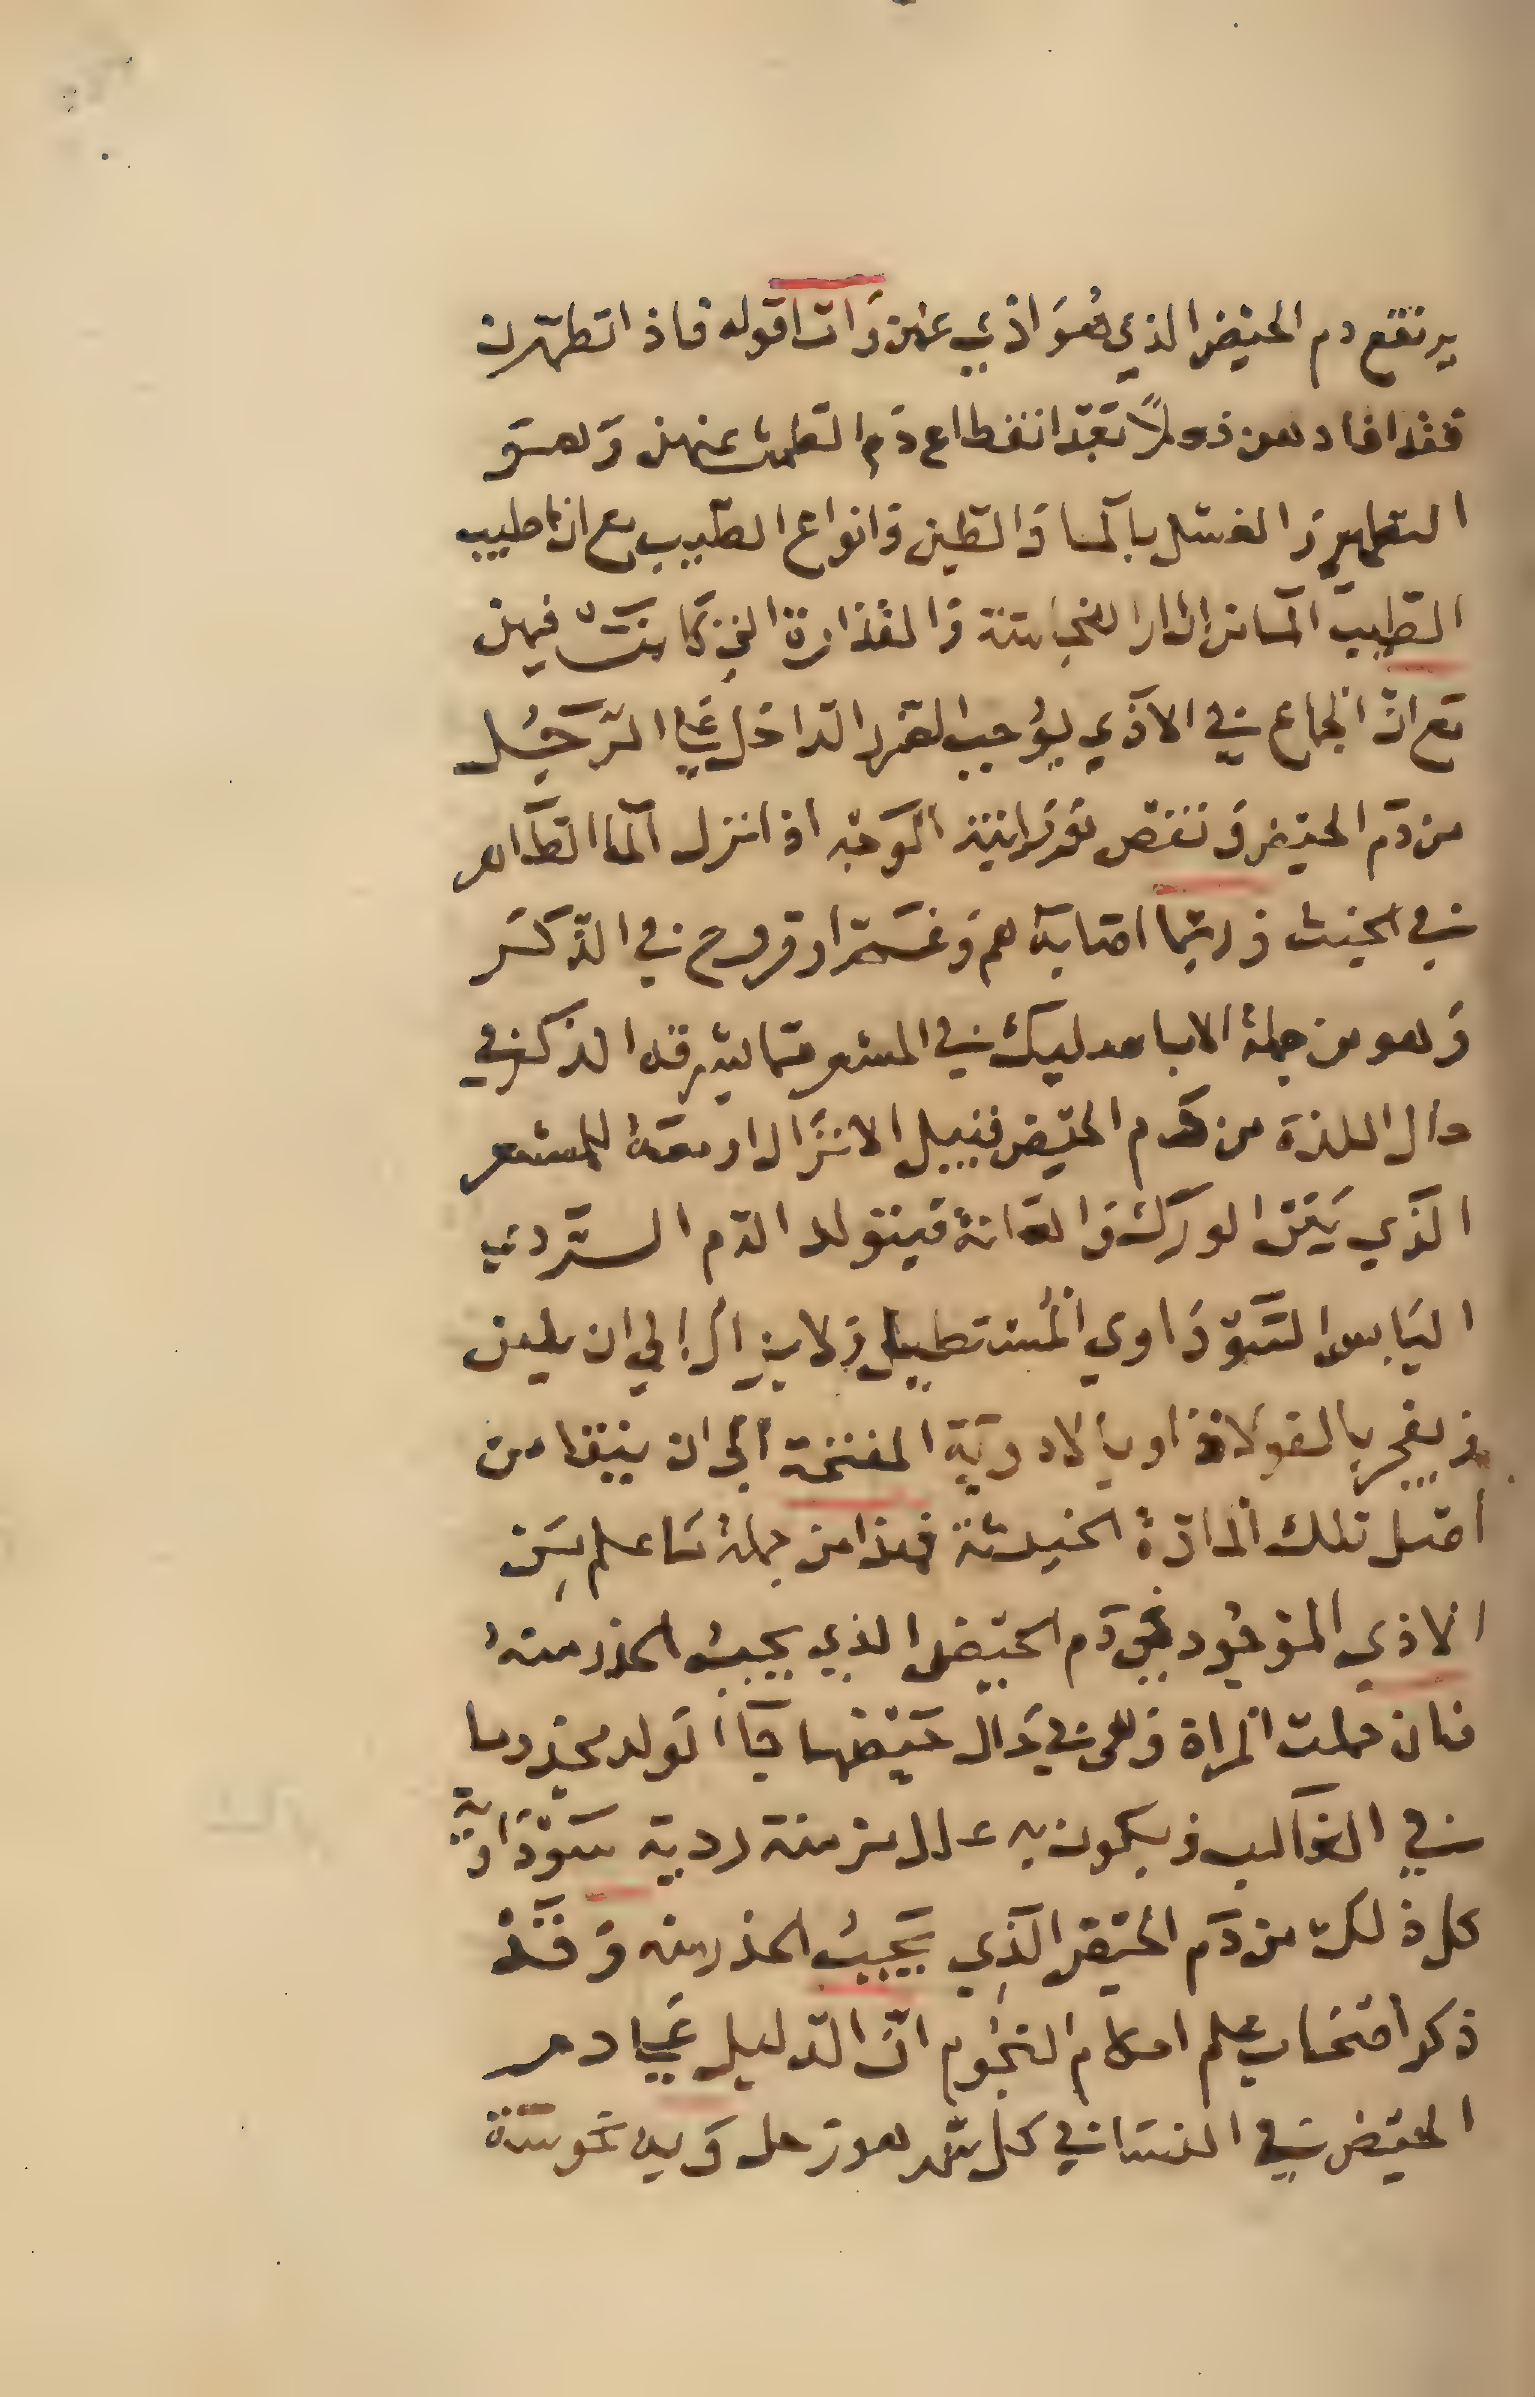 يرتفع دم الحيض الذي هو اذي عنهن وَاتا قوله فاذا تطهرن
فقد افاد بعد انقطاع دَم الطمث عنهن وَهو
التطهير وَالغسل بالما وَالطين وَانواع الطيب مع ان اطيب
الطيب الما النجاسة وَالقذارة التي كانت فيهن
مع انّ الجماع في الاذي يوجب الضرر الداخل علي الرّجُل
من دَم الحيض وَنقص نورانية الوَجه اذا نزل الما الطاهر
في الخبث وَربّما اصابه هم وَغم او قروح في الذكر
وَهو من جملة في المشعر ممّا يسرقه الذكر في
حال اللذة من دَم الحيض قبيل الانزال او معه للمشعر
الذي بَين الورك وَالعَانة فيتولد الدّم الردي
اليَابس السَّودَاوي المُستطيل وَلا يزال الي ان يلين
وَيفجر بالفولاذ او بالادوية المفتحة الي ان ينقا من
اصل تلك المادّة الخبيثة فهذا من جملة مَا علم مِن
الاذي الموجُود في دَم الحيض الذي يجب الحذر منهُ
فان حملت المراة وَهي في حَال حَيضها جَا الوَلد مجذوما
في الغالب وَيكون به علل مزمنة ردية سَوْدَاوِيّة
كل ذلك من دَم الحيض الذِي يَجبُ الحذر منه وَقَدْ
ذكر اصحَاب علم احكام النجُوم انّ الدّليل عَلي دم
الحيض في النسَا في كل شهر هو زحل وَبه نحوسة